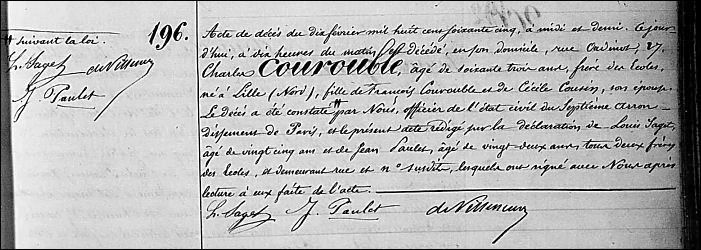 196.
# suivant la loi.
L. Saget
J. Paulet
Acte de décès du dix février mil huit cent soixante cinq, à midi et demi. Ce jour
d'hui, à dix heures du matin est décédé, en son domicile, rue Oudinot, 27,
Charles Courouble, âgé de soixante trois ans, frère des Ecoles,
né à Lille (Nord), fils de François Courouble et de Cécile Cousin, son épouse.
Le décès a été constaté # par Nous, officier de l'état civil du Septième arron-
dissement de Paris, et le présent acte rédigé sur la déclaration de Louis Saget,
âgé de vingt cinq ans et de Jean Paulet, âgé de vingt-deux ans, tous deux frères
des écoles, et demeurant rue et n° susdits, lesquels ont signé avec Nous après
lecture à eux faite de l'acte.
L. Saget J. Paulet